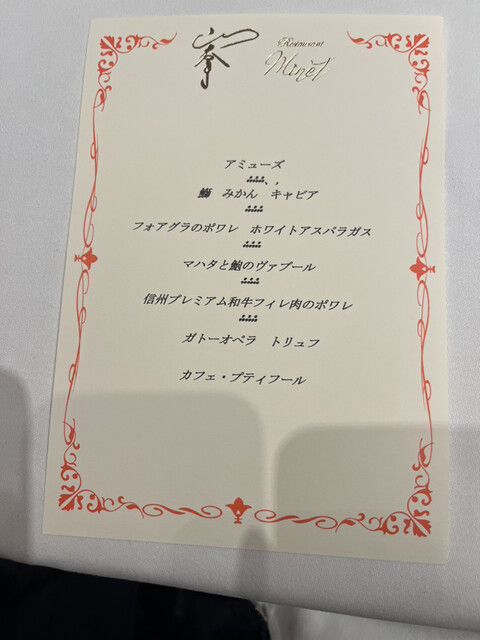 峯
Restaurant
Minet
アミューズ
鰤　みかん　キャビア
フォアグラのポワレ　ホワイトアスパラガス
マハタと鮑のヴァプール
信州プレミアム和牛フィレ肉のポワレ
ガトーオペラ　トリュフ
カフェ・プティフール